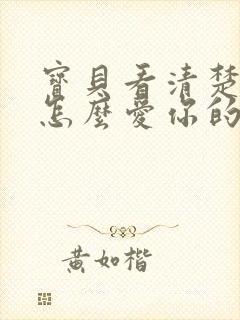 寶貝看清楚
怎麼愛你的
黃如楷